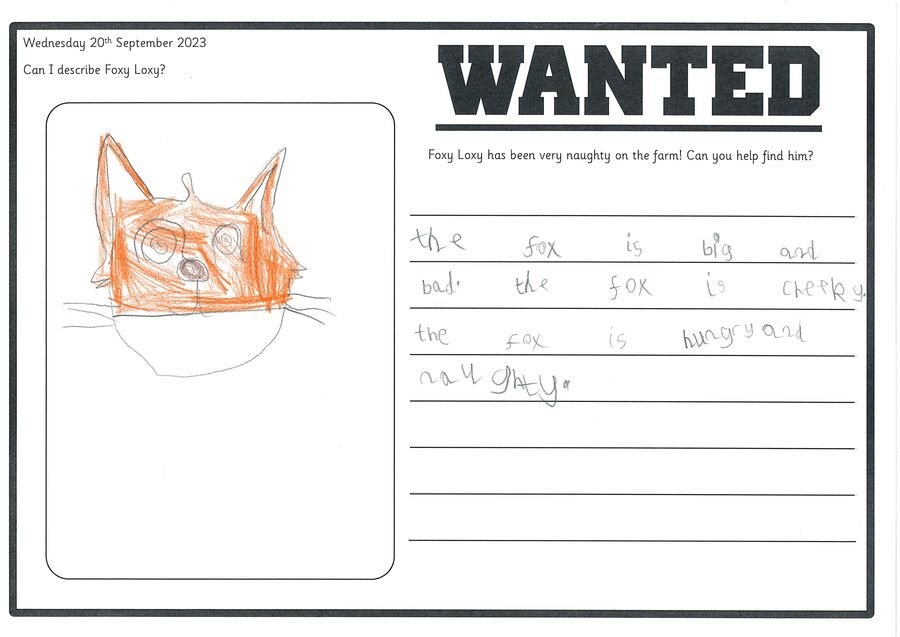 Wednesday 20th September 2023
Can I describe Foxy Loxy?
WANTED
Foxy Loxy has been very naughty on the farm! Can you help find him?
the fox is big and
bad. the fox is cheeky.
the fox is hungry and
naughty.